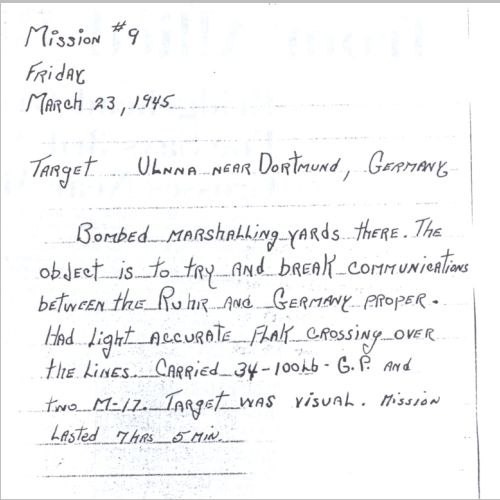 Mission #9
Friday
March 23, 1945
Target Ulnna near Dortmund, Germany
Bombed marshalling yards there. The
object is to try and break communications
between the Ruhr and Germany proper.
Had light accurate flak crossing over
the lines. Carried 34-100Lb- G.P. and
two M-17. Target was visual. Mission
Lasted 7hrs 5min.